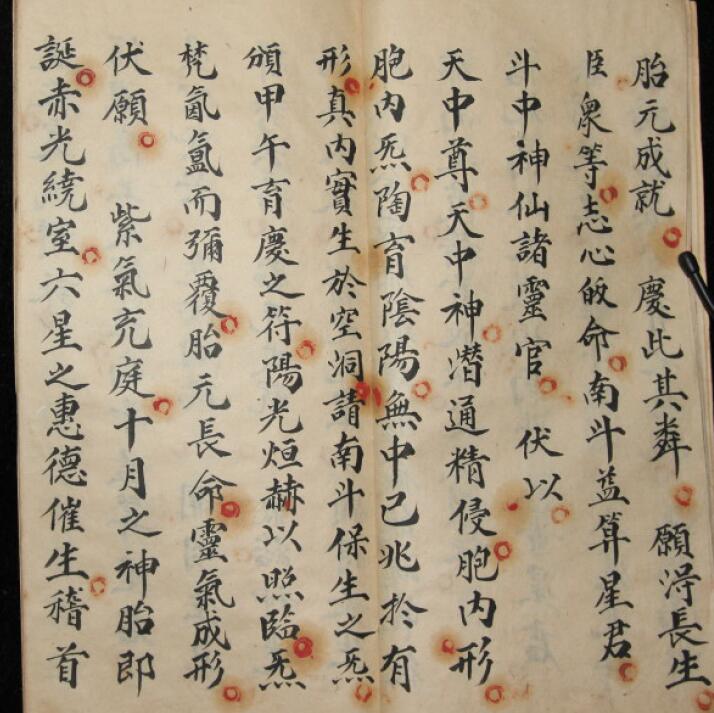 胎元成就　慶此其粦　願淂長生
臣衆等志心皈命南斗益算星君
斗中神仙諸靈官　伏以
天中尊天中神潛通精侵胞內形
胞內炁陶育陰陽無中已兆扵有
形真內實生於空洞請南斗保生之炁
頒甲午育慶之符陽光烜赫以照臨炁
梵氤氳而彌覆胎元長命靈氣成形
伏願　紫氣充庭十月之神胎即
誕赤光繞室六星之惠德催生稽首